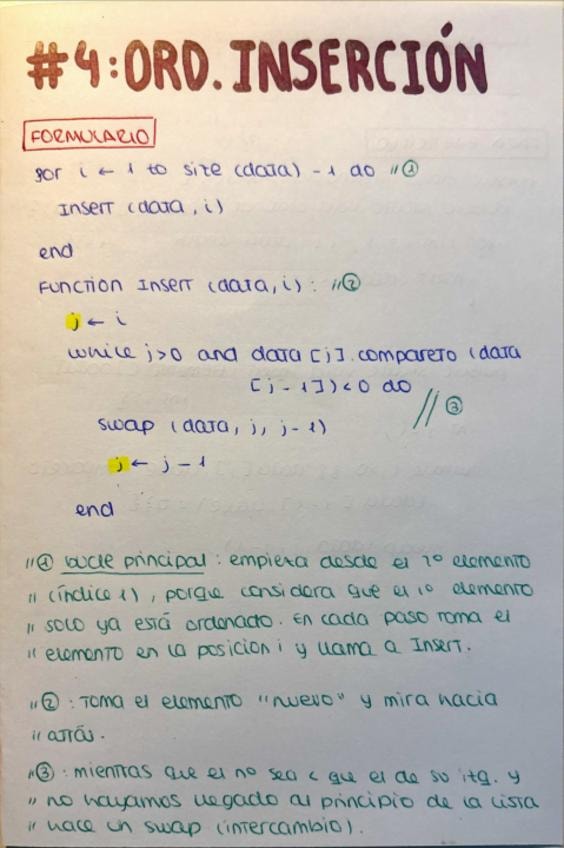 #4: ORD. INSERCIÓN
FORMULARIO
for i ← 1 to size (data) - 1 do //①
Insert (data, i)
end
Function Insert (data, i): //②
j ← i
while j>0 and data [j].compareTo (data
[j - 1]) < 0 do
//③
swap (data, j, j-1)
j ← j - 1
end
//① bucle principal: empieza desde el 2º elemento
// (índice 1), porque considera que el 1º elemento
// solo ya está ordenado. En cada paso toma el
// elemento en la posición i y llama a Insert.
//②: Toma el elemento "nuevo" y mira hacia
// atrás.
//③: mientras que el nº sea < que el de su izq. y
// no hayamos llegado al principio de la lista
// hace un swap (intercambio).